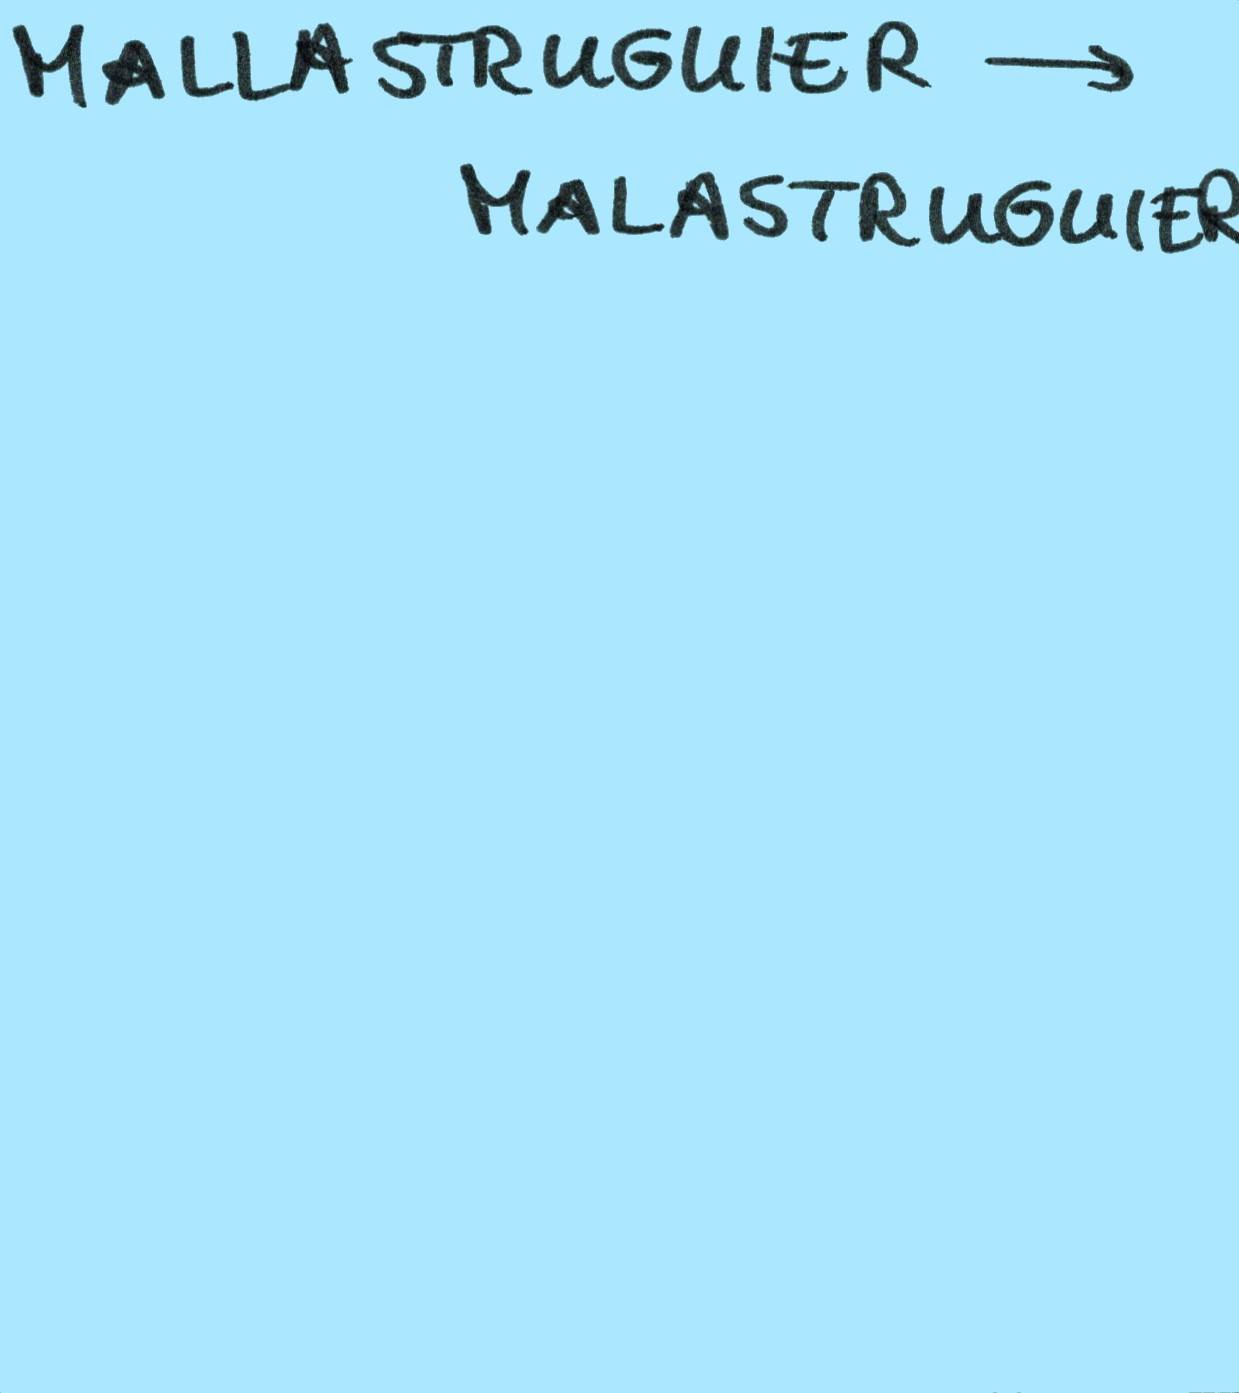 MALLASTRUGUIER →
MALASTRUGUIER